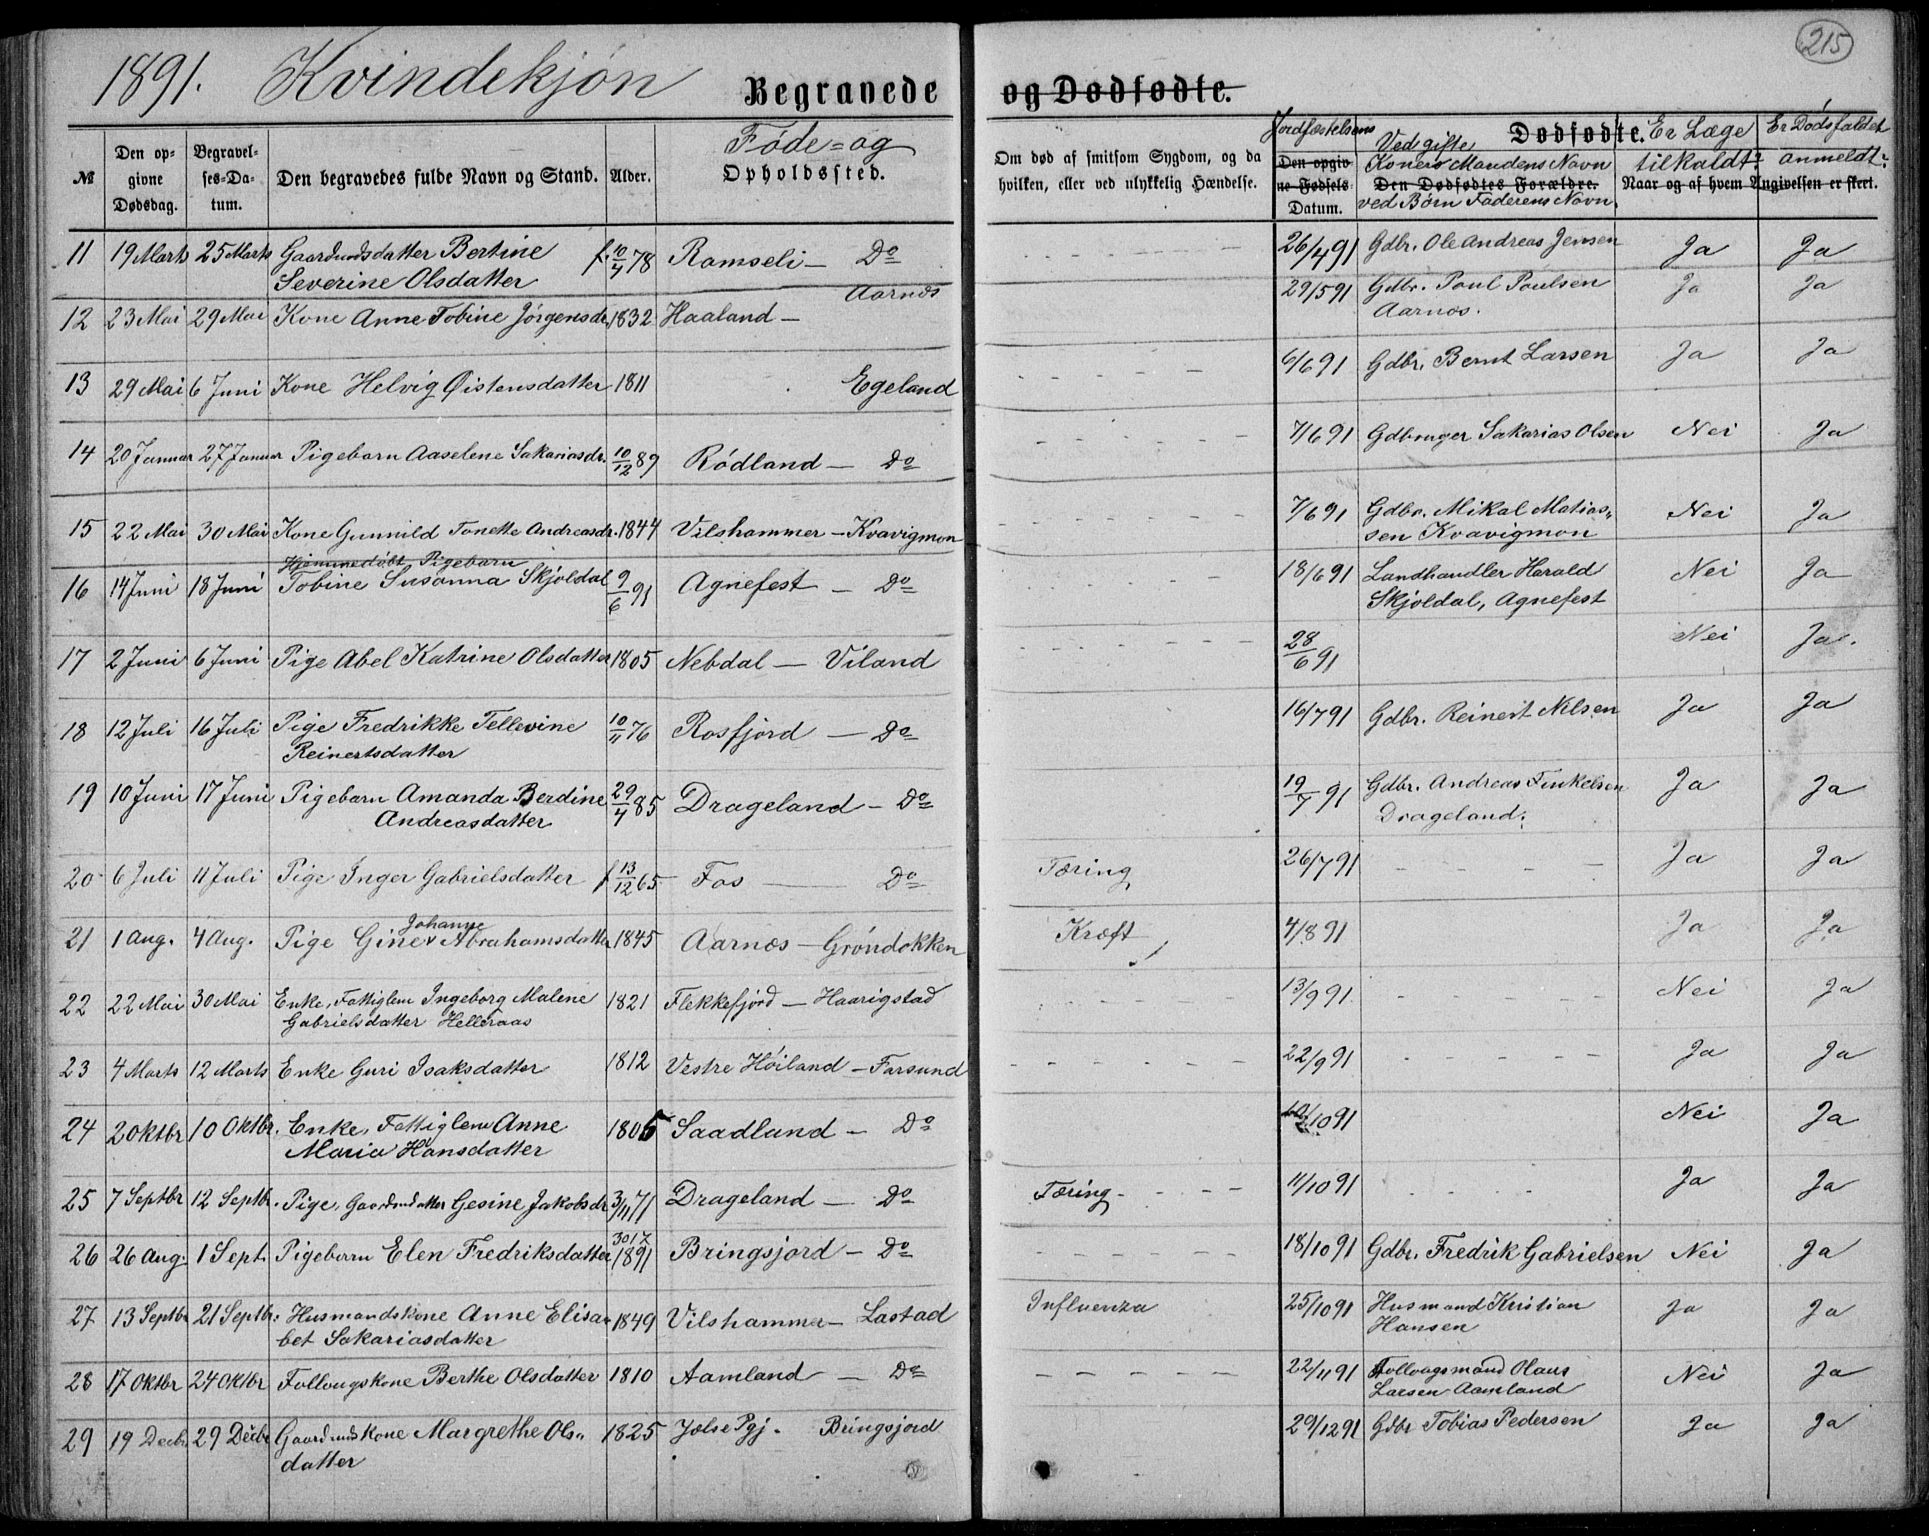 215
1891. Kvindekjøn Begravede og Dødfødte.
№
Den opgivne Dødsdag.
Begravelses-Datum.
Den begravedes fulde Navn og Stand.
Alder.
Føde- og Opholdssted.
Om død af smitsom Sygdom, og da hvilken, eller ved ulykkelig Hændelse.
Jordfæstelsens
Den opgivne Fødsels-Datum.
Dødfødte.
Ved gifte Koner Mandens Navn
Den Dødfødtes Forældre.
ved Børn Faderens Navn.
Er Læge tilkaldt?
Er Dødsfaldet anmeldt?
Naar og af hvem Angivelsen er skeet.
11 19 Marts 25 Marts Gaardmdsdatter Bertine f. 10/4 78 Ramseli — Do 26/4 91 Gdbr. Ole Andreas Jensen Ja Ja
Severine Olsdatter
12 23 Mai 29 Mai Kone Anne Tobine Jørgensdr. 1832 Haaland — Aarnes 29/5 91 Gdbr. Poul Poulsen Ja Ja
Aarnes.
13 29 Mai 6 Juni Kone Helvig Øistensdatter 1811 Egeland 6/6 91 Gdbr. Bernt Larsen Ja Ja
14 20 Januar 27 Januar Pigebarn Aaselene Sakariasdr. 10/12 89 Rødland — Do 7/6 91 Gdbruger Sakarias Olsen Nei Ja
15 22 Mai 30 Mai Kone Gunnild Tonette Andreasdr. 1844 Vilshammer — Kvavigmon 7/6 91 Gdbr. Mikal Matias- Nei Ja
sen Kvavigmon
Hjemmedøbt Pigebarn
16 14 Juni 18 Juni Tobine Susanna Skjoldal 9/6 91 Agnefest — Do 18/6 91 Landhandler Harald Nei Ja
Skjoldal, Agnefest
17 2 Juni 6 Juni Pige Abel Katrine Olsdatter 1805 Nebdal — Viland 28/6 91 Nei Ja.
18 12 Juli 16 Juli Pige Fredrikke Tellevine 10/11 76 Rosfjord — Do 16/7 91 Gdbr. Reinert Nilsen Ja Ja
Reinertsdatter
19 10 Juni 17 Juni Pigebarn Amanda Berdine 29/4 85 Drageland — Do 19/7 91 Gdbr. Andreas Finkelsen Ja Ja
Andreasdatter Drageland.
20 6 Juli 11 Juli Pige Inger Gabrielsdatter f 13/12 65 Fos — Do Tæring 26/7 91 Ja Ja
Johanne
21 1 Aug. 4 Aug. Pige Gine Abrahamsdatter 1845 Aarnes — Grøndokken Kræft 4/8 91 Ja Ja
22 22 Mai 30 Mai Enke, Fattiglem Ingeborg Malene 1821 Flekkefjord — Haarigstad 13/9 91 Nei Ja
Gabrielsdatter Helleraas
23 4 Marts 12 Marts Enke Guri Isaksdatter 1812 Vestre Høiland — Farsund 22/9 91 Ja Ja
24 2 Oktbr 10 Oktbr. Enke, Fattiglem Anne 1805 Saadland — Do 10/10 91 Nei Ja
Maria Hansdatter
25 7 Septbr 12 Septbr. Pige, Gaardmdatter Gesine Jakobsdr 3/11 71 Drageland — Do Tæring 11/10 91 Ja Ja
26 26 Aug. 1 Sept. Pigebarn Elen Fredriksdatter 30/7 1891 Bringsjord — Do 18/10 91 Gdbr. Fredrik Gabrielsen Nei Ja
27 13 Septbr 21 Septbr. Husmandskone Anne Elisa- 1849 Vilshammer — Lastad Influenza 25/10 91 Husmand Kristian Ja Ja
bet Sakariasdatter Hansen
28 17 Oktbr 24 Oktbr Follougskone Berthe Olsdatter 1810 Aamland — Do 22/11 91 Follougsmand Olaus Nei Ja
Larsen Aamland
29 19 Decbr 29 Decbr Gaardmdskone Margrethe Ols- 1825 Jølse Pgj. Bringsjord 29/12 91 Gdbr Tobias Pedersen Ja Ja
datter